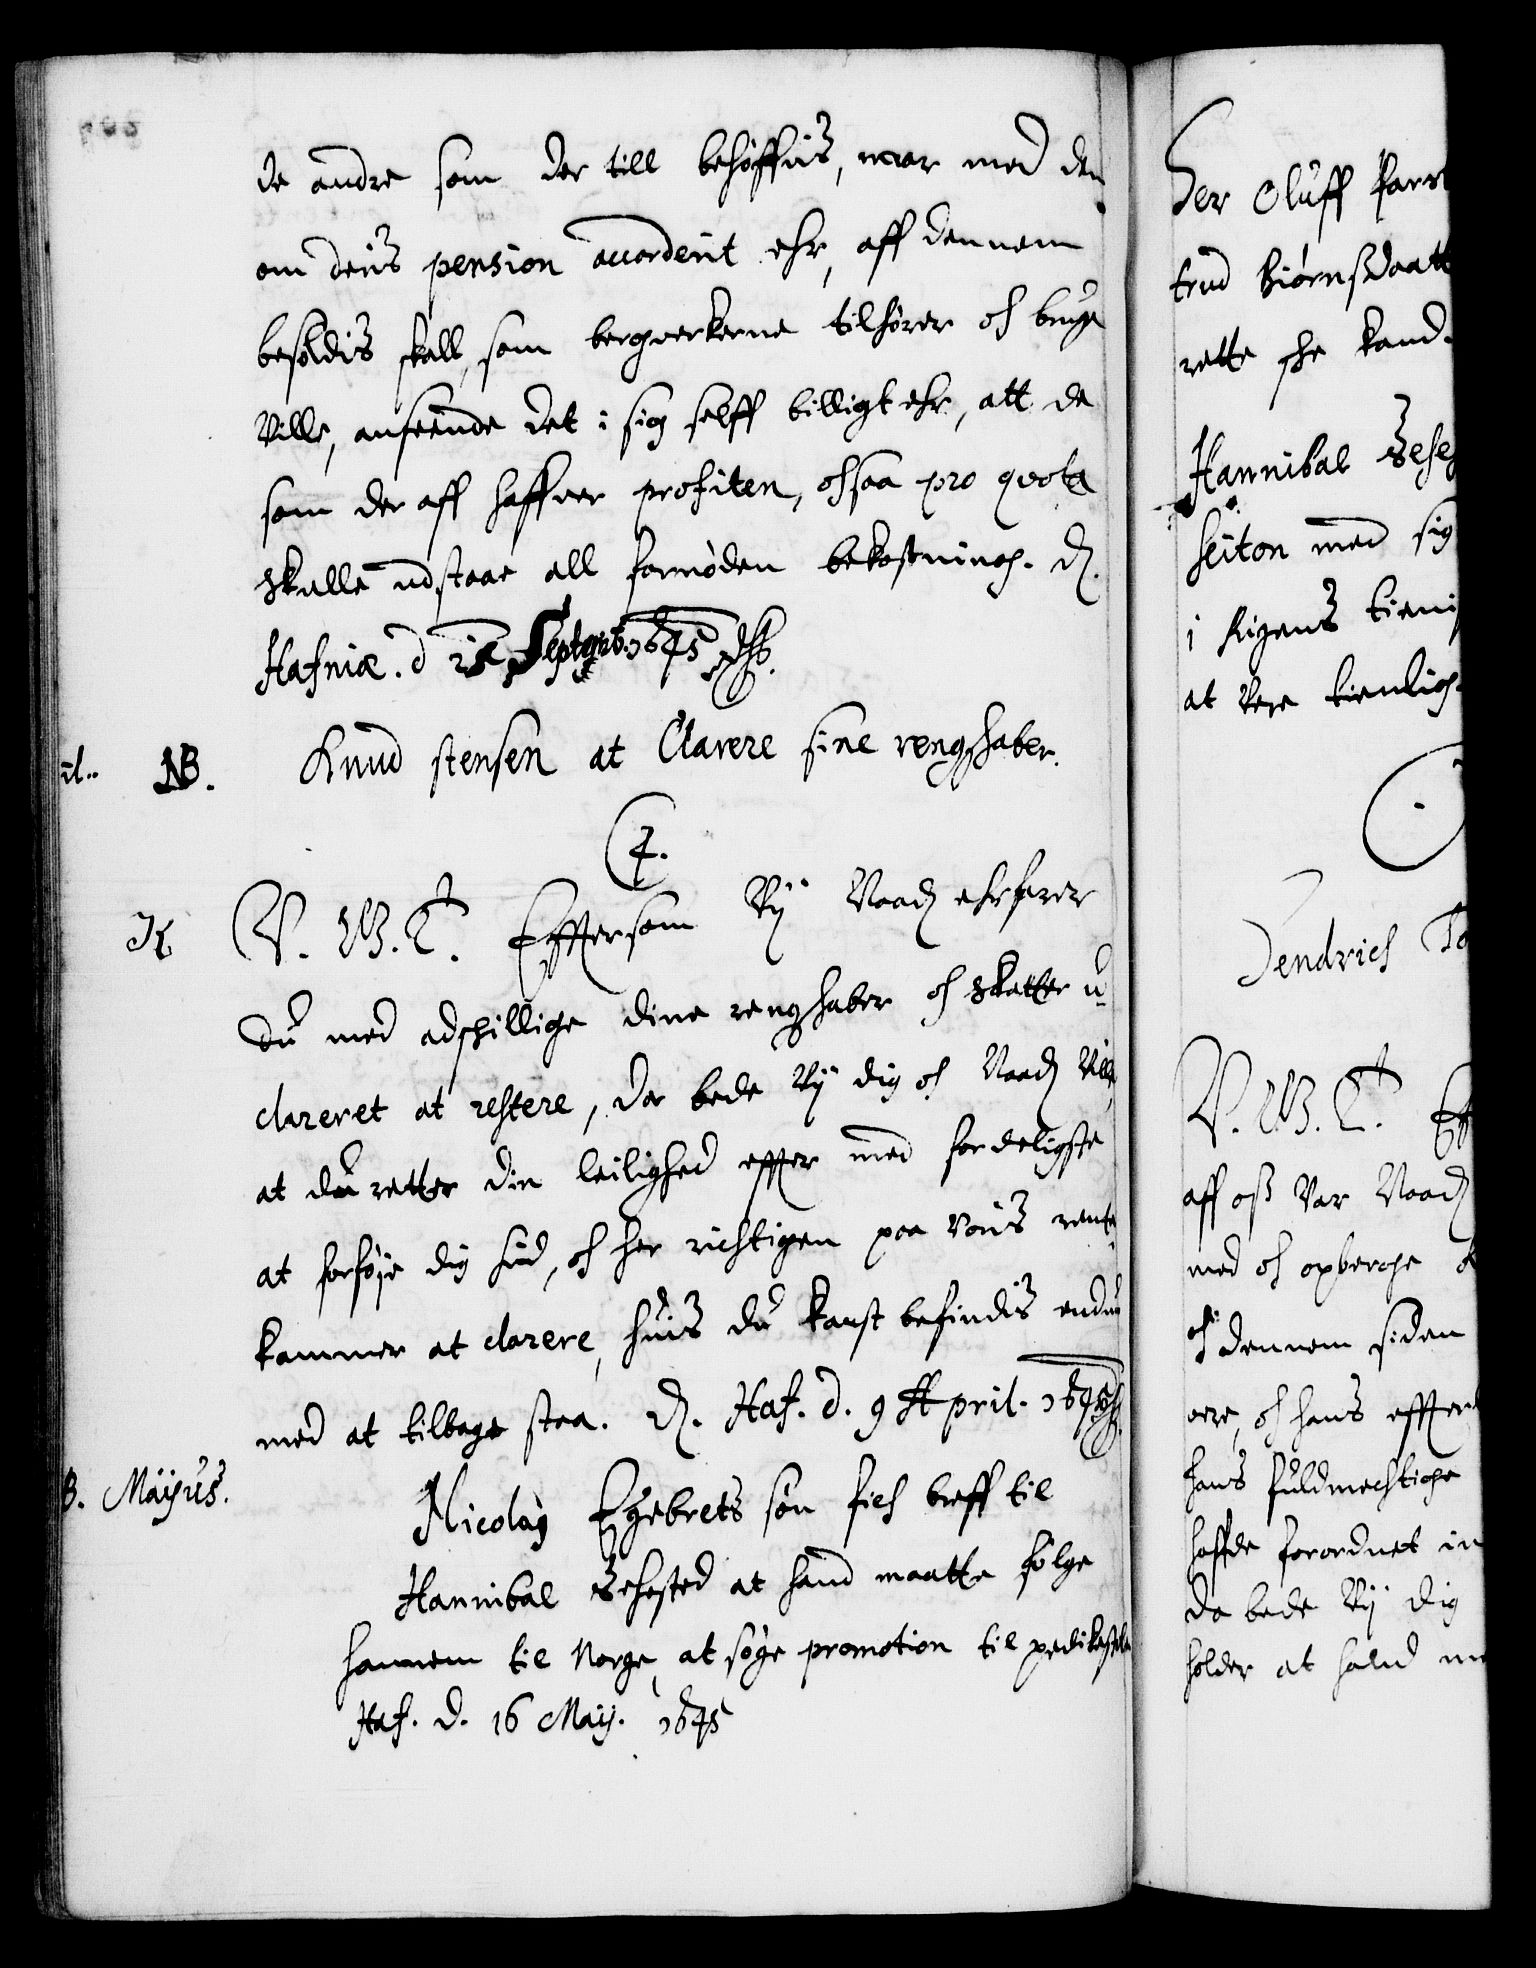 de andre som der till behøffuis, naar med dem
om deris pension accorderit ehr, aff dennem
besoldis skall, som bergverkerne tilhører och bruge
Ville, anseende det i sig selff billigt ehr, att de
som der aff haffuer profiten, ochsaa pro qvota
skulle udstaae all fornøden bekostning. D.
Hafniæ. d Septemb. 1645
NB. Knud stensen at Clarere sine rengschaber.
V. G. T. Efftersom Vij Naad erfarer
du med adschillige dine rengschaber och skatter u-
clareret at restere, da bede Vij dig och Naad Ville,
at du retter din leilighed effter med forderligste
at forføje dig hid, och her richtigen paa Voris rente
kammer at clarere, huis du kanst befindis endnu
med at tilbage staa. D. Haf. d. 9 April. 1645
B. Maijus.
Nicolaj Egebrets søn fich breff til
Hannibal Sehested at hand maatte følge
hannem til Norge, at søge promotion til predikestole
Haf. d. 16 Maij. 1645
Her Oluff
trud Biørnsdaatt
rette sche kand.
Hannibal Sehe
med sig
i Rigens tieni
at Vere tienlig.
Hendrich To
V. G. T. Eff
aff oss Var Naad
med och opberge
och dennem siden
vere, och hans effter
hans fuldmechtige
haffde forordnet in
da bede Vij dig
holder at haand